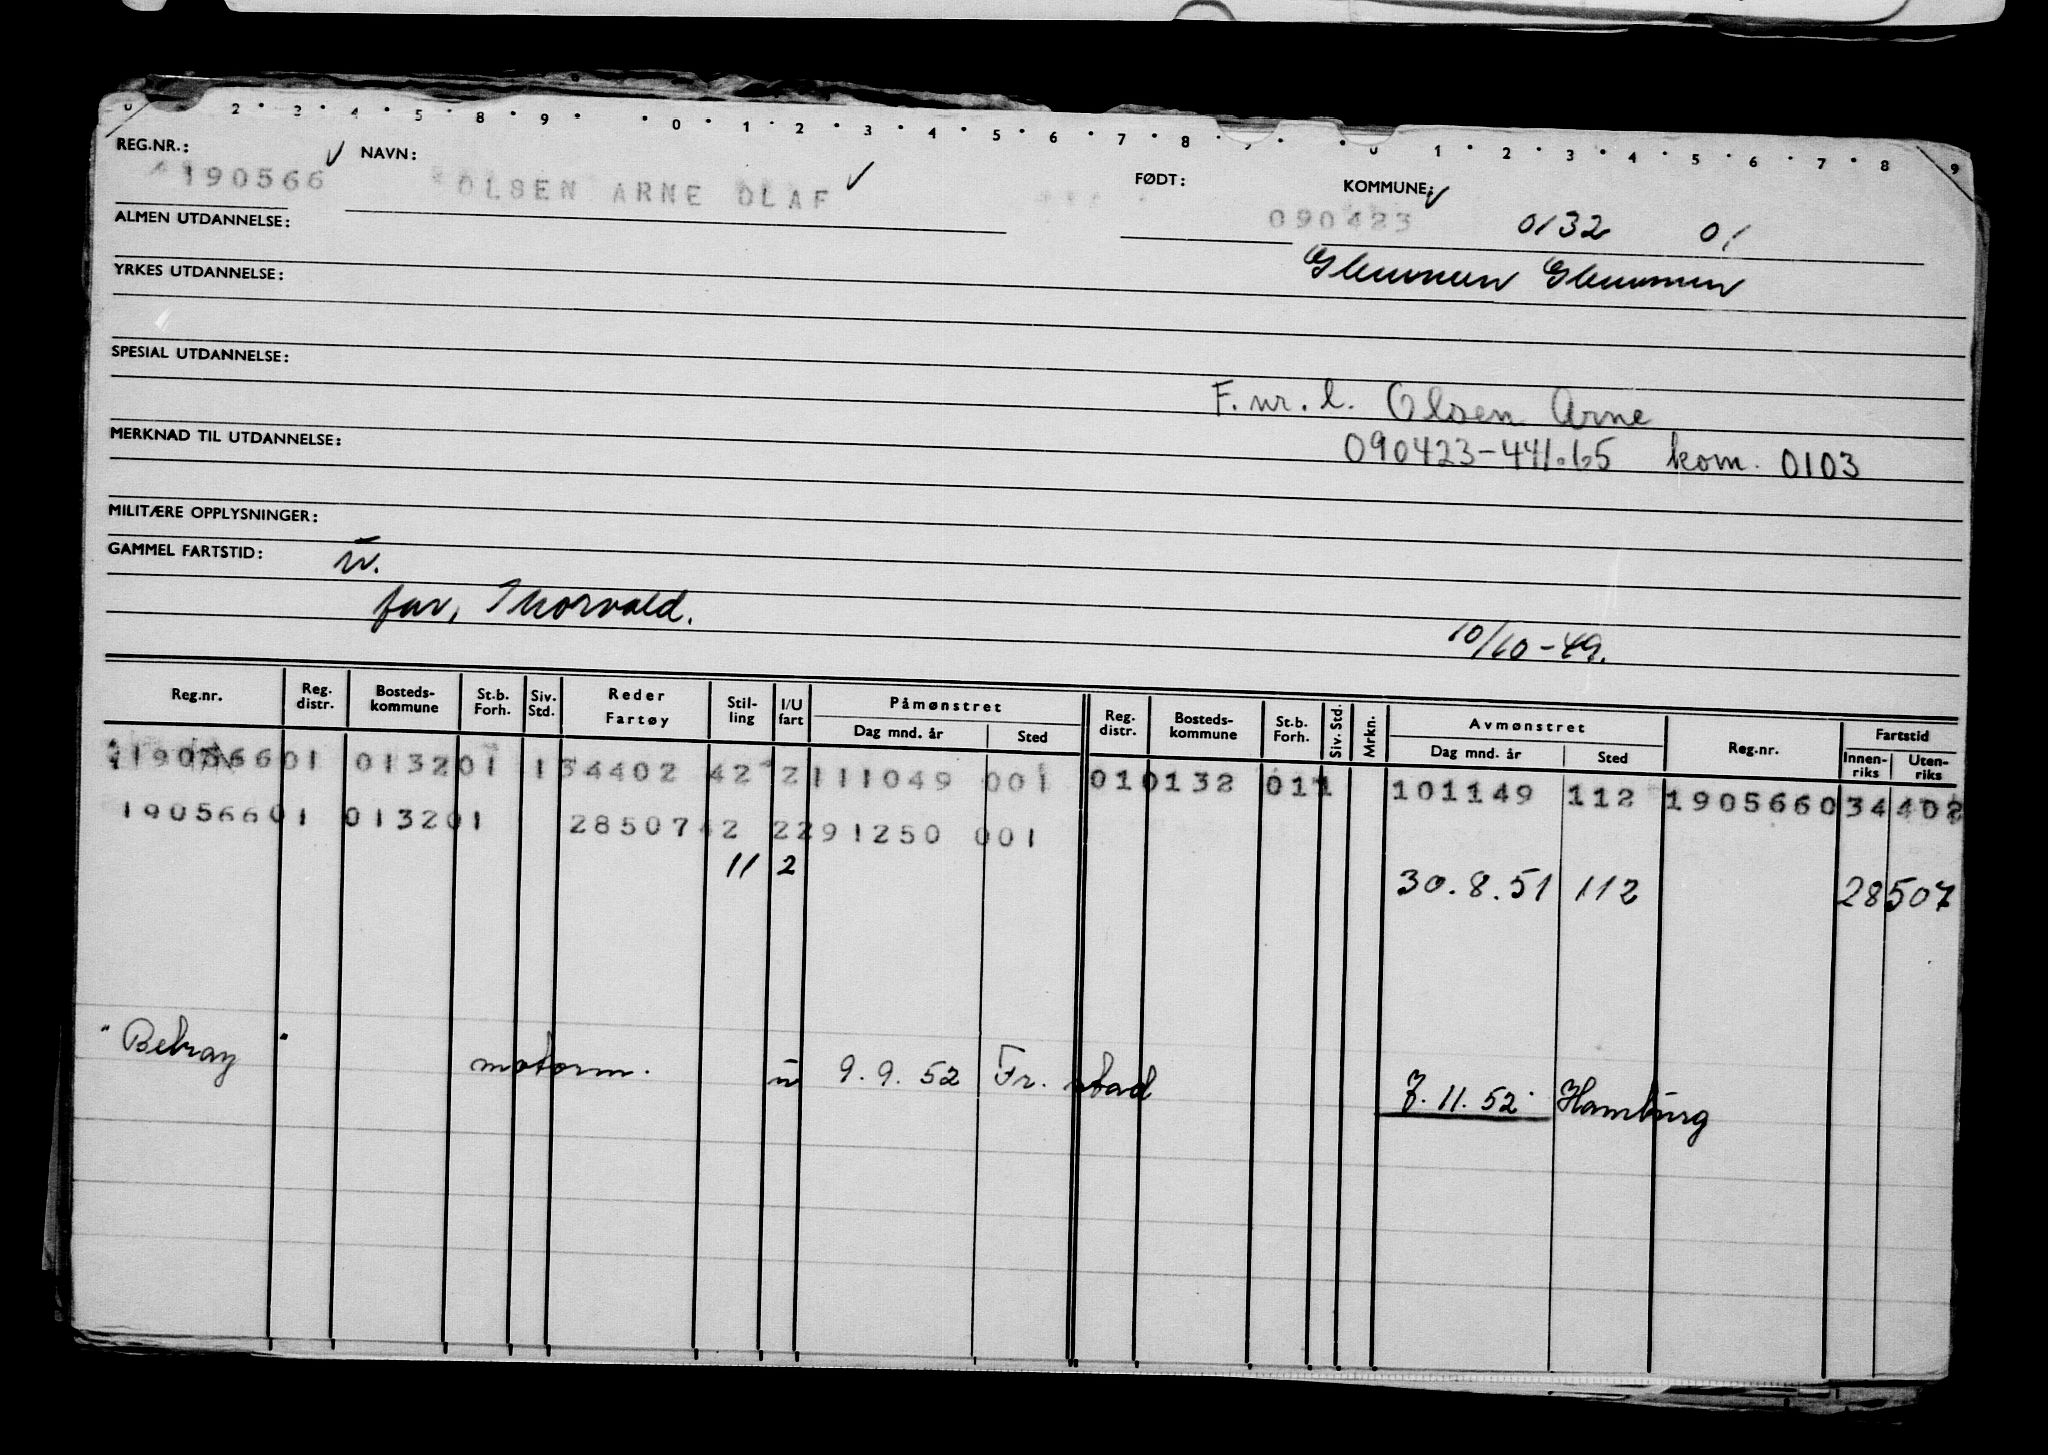 0 2 . 3 . 4 . 5 . 8 . 9 . . 0 . 1 . 2 . 3 . 4 . 5 . 6 . 7 . 8 . , . . 0 . 1 . 2 . 3 . 4 . 5 . 6 . 7 . 8 . 9
REG.NR.: NAVN: FØDT: KOMMUNE:
190566 OLSEN ARNE OLAF 090423 0132 01
ALMEN UTDANNELSE:
Glemmen Glemmen
YRKES UTDANNELSE:
SPESIAL UTDANNELSE:
F.nr. l. Olsen Arne
MERKNAD TIL UTDANNELSE:
090423-441.65 kom. 0103
MILITÆRE OPPLYSNINGER:
GAMMEL FARTSTID: u.
far, Thorvald.
10/10-49.
Reg.nr. Reg. distr. Bosteds-kommune St.b. Forh. Siv. Std. Reder Fartøy Stil-ling I/U fart Påmønstret Dag mnd. år Sted Reg. distr. Bosteds-kommune St.b. Forh. Siv. Std. Mrkn. Avmønstret Dag mnd. år Sted Reg.nr. Fartstid Innen-riks Uten-riks
19056601 013201 134402 42 2 111049 001 010132 011 101149 112 190566034402
19056601 013201 2850742 2291250 001
11 2 30.8.51 112 28507
"Betray" motorm. u 9.9.52 Fr.stad 7.11.52 Hamburg